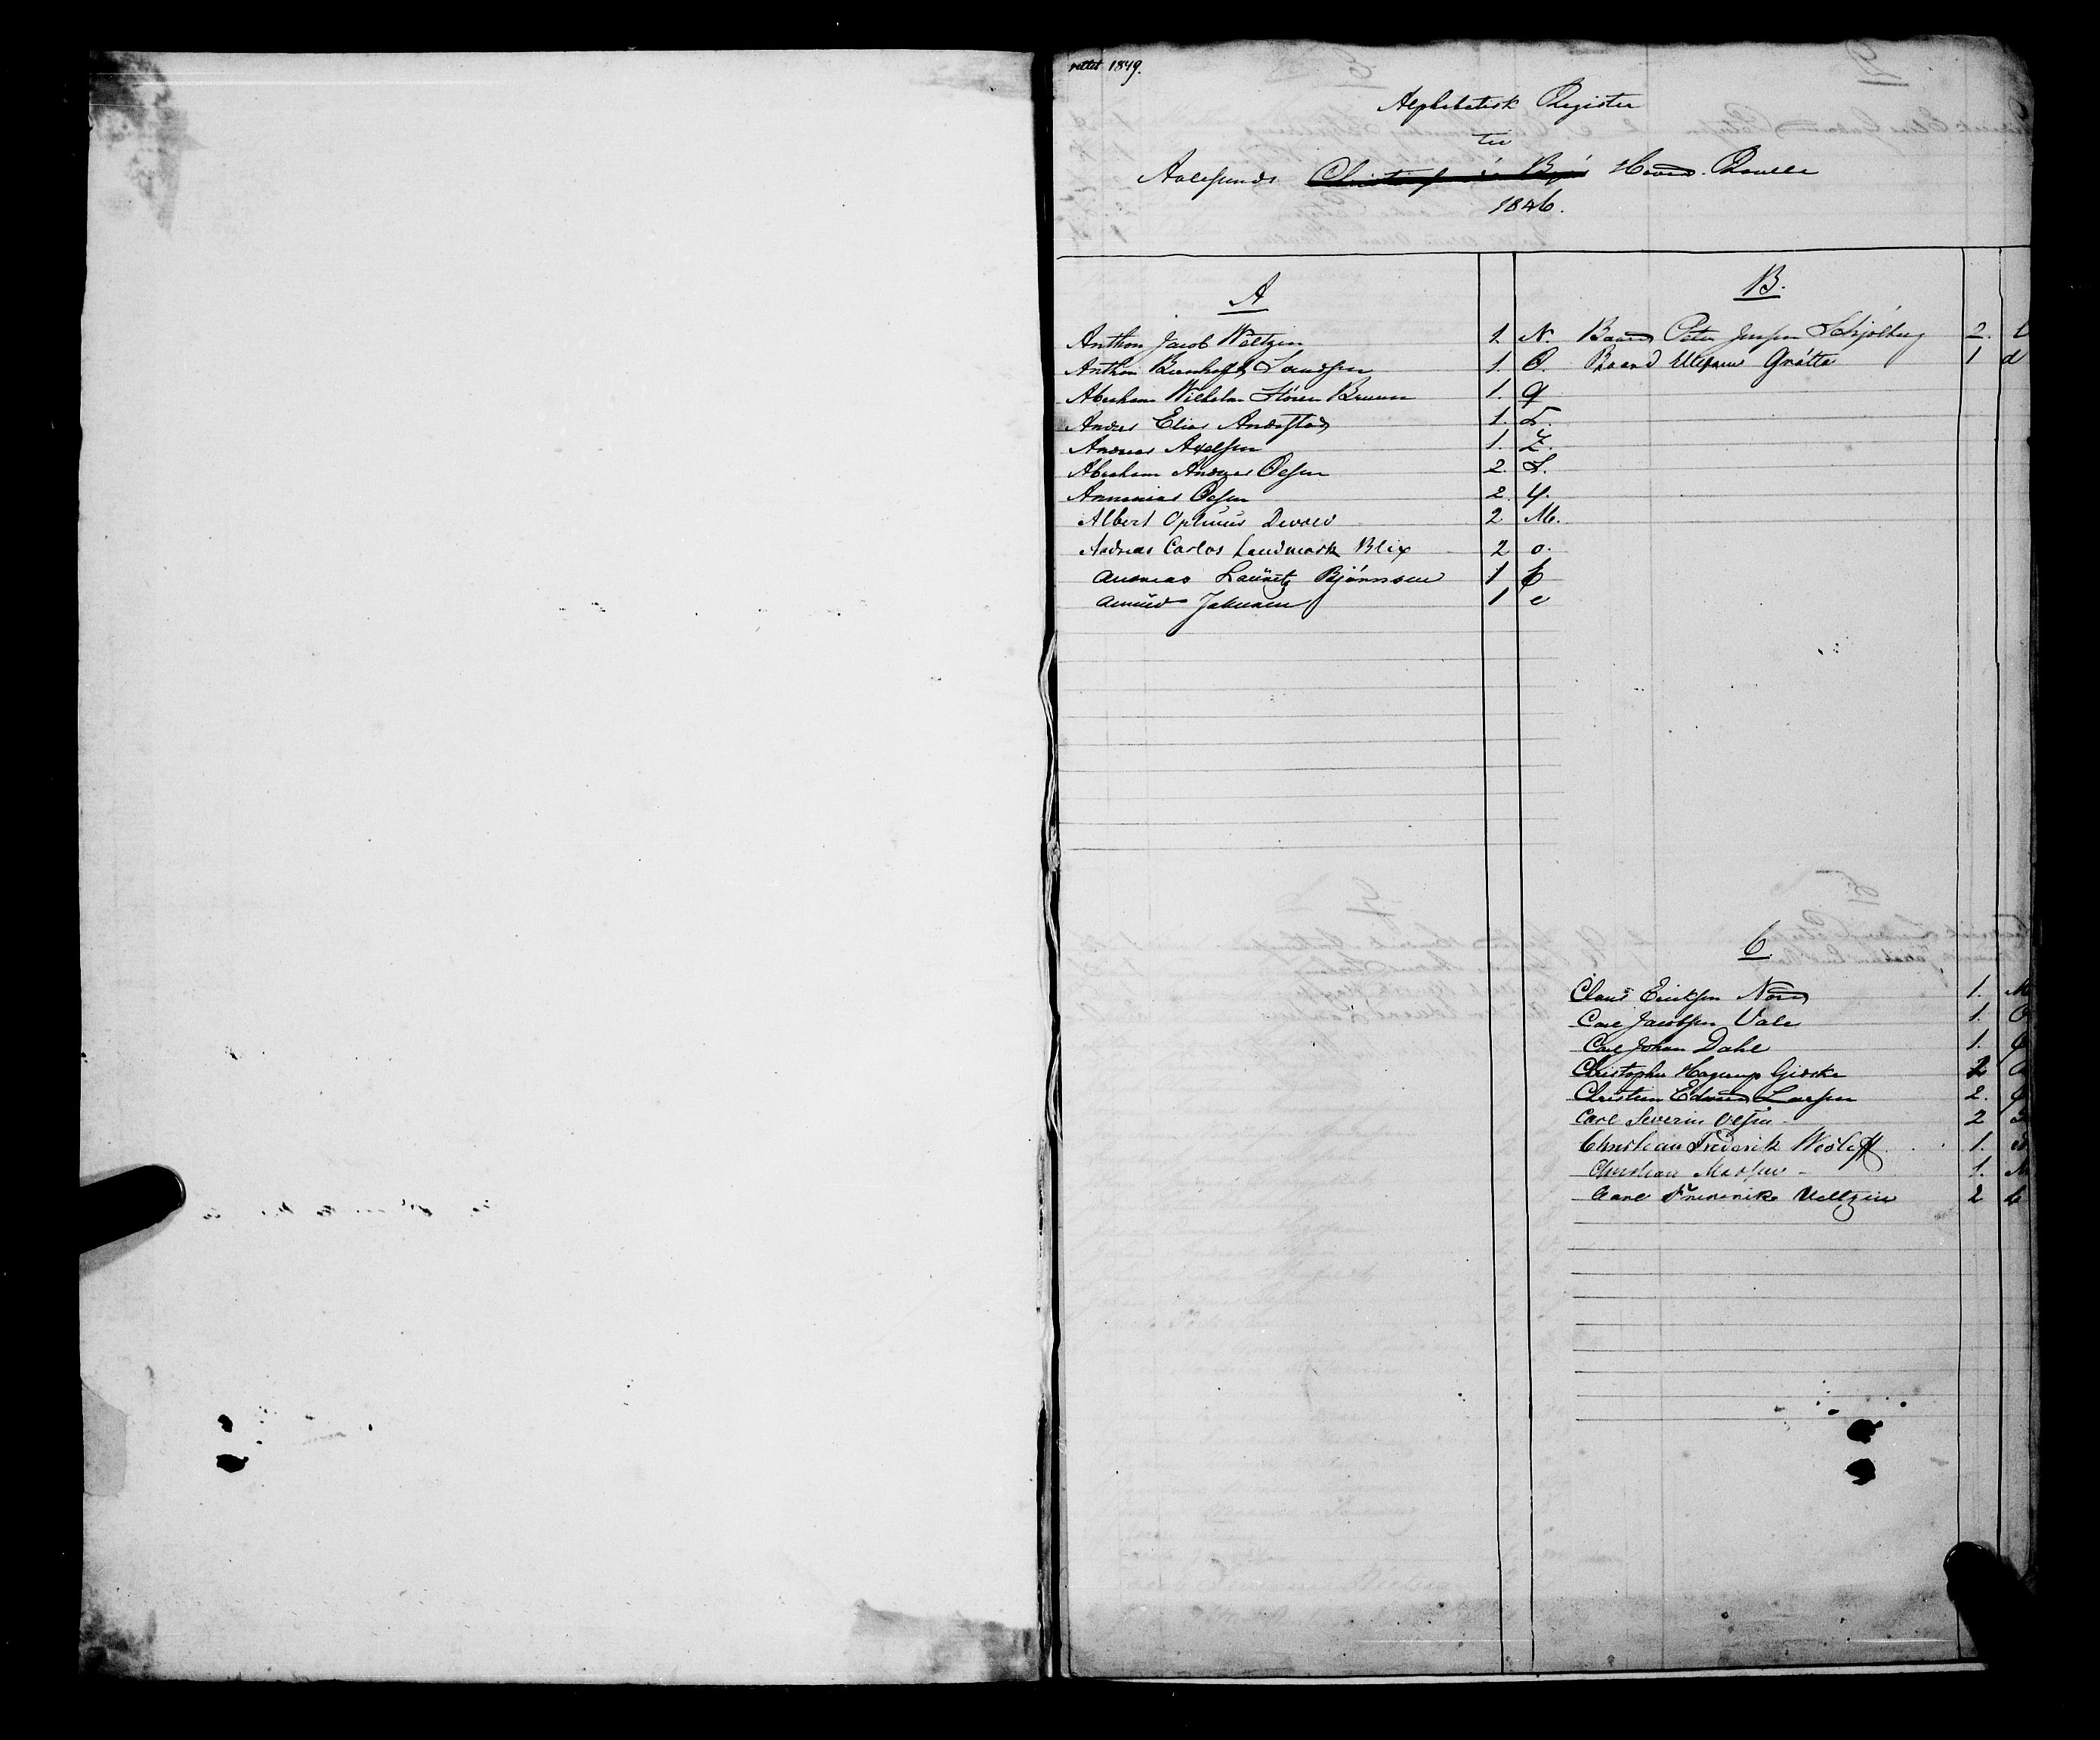 rettet 1849.
Alphabetisk Register
til
Aalesunds Hoved Roulle
1846.
A
Anthon Jacob Weltzin 1. N.
Anthon Bernhoft 1. O.
Abraham Wilhelm Stören Bruun 1. q
Anders Elias 1.
Andreas Axelsen 1. Z.
Abraham Andreas Olsen 2. S.
Ananias Olsen 2. y.
Albert Optinus Devold 2 M.
Andreas Carlos Landmark Blix 2 o.
Andreas Lauritz Björnsen 1
Amund Johnsen 1 e
B.
Baard Peter Jensen 2.
Baard Ellefsen Grötte 1 d
C.
Claus Eriksen Nord 1. M
Carl Jacobsen Vale 1. O
Carl Johan Dahl 1.
Christopher Hagerup Gidske 2
Christian Edvard Larsen 2.
Carl Severin Olsen 2
Christian Frederik 1.
Christian Madsen 1.
Carl Frederik Weltzin 2